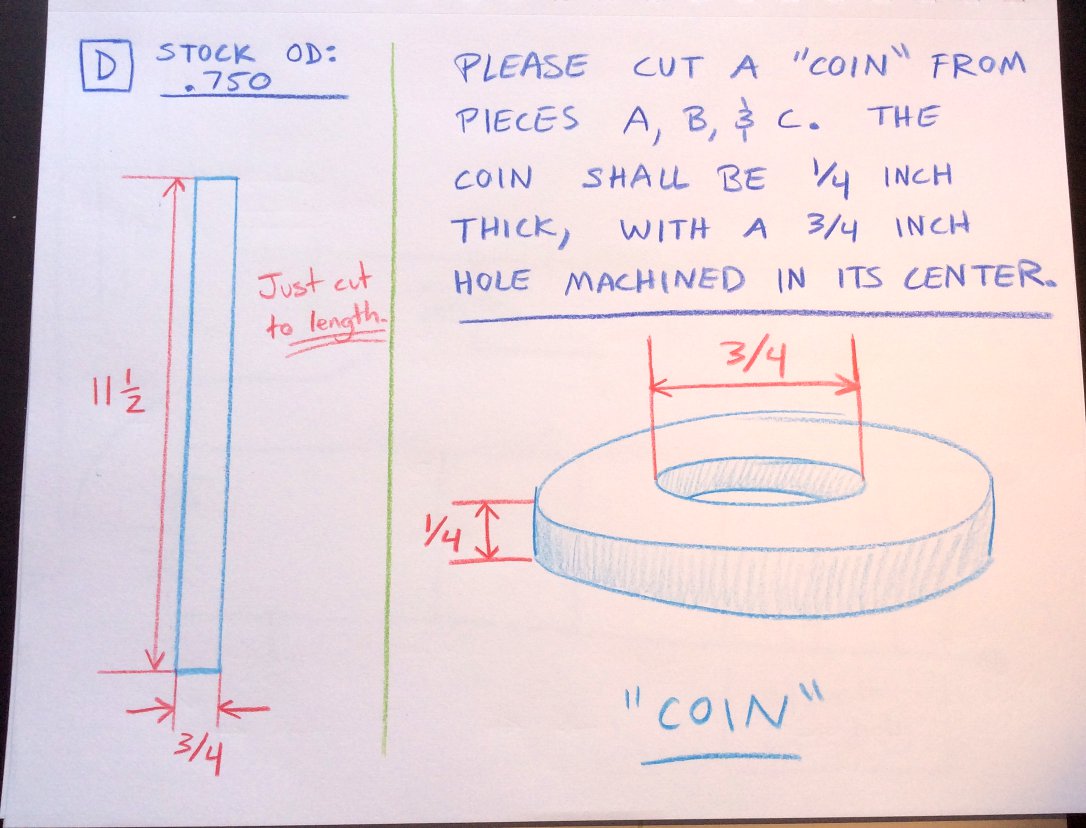 D STOCK OD:
.750
Just cut
to length.
11 1/2
3/4
PLEASE CUT A "COIN" FROM
PIECES A, B, & C. THE
COIN SHALL BE 1/4 INCH
THICK, WITH A 3/4 INCH
HOLE MACHINED IN ITS CENTER.
3/4
1/4
"COIN"